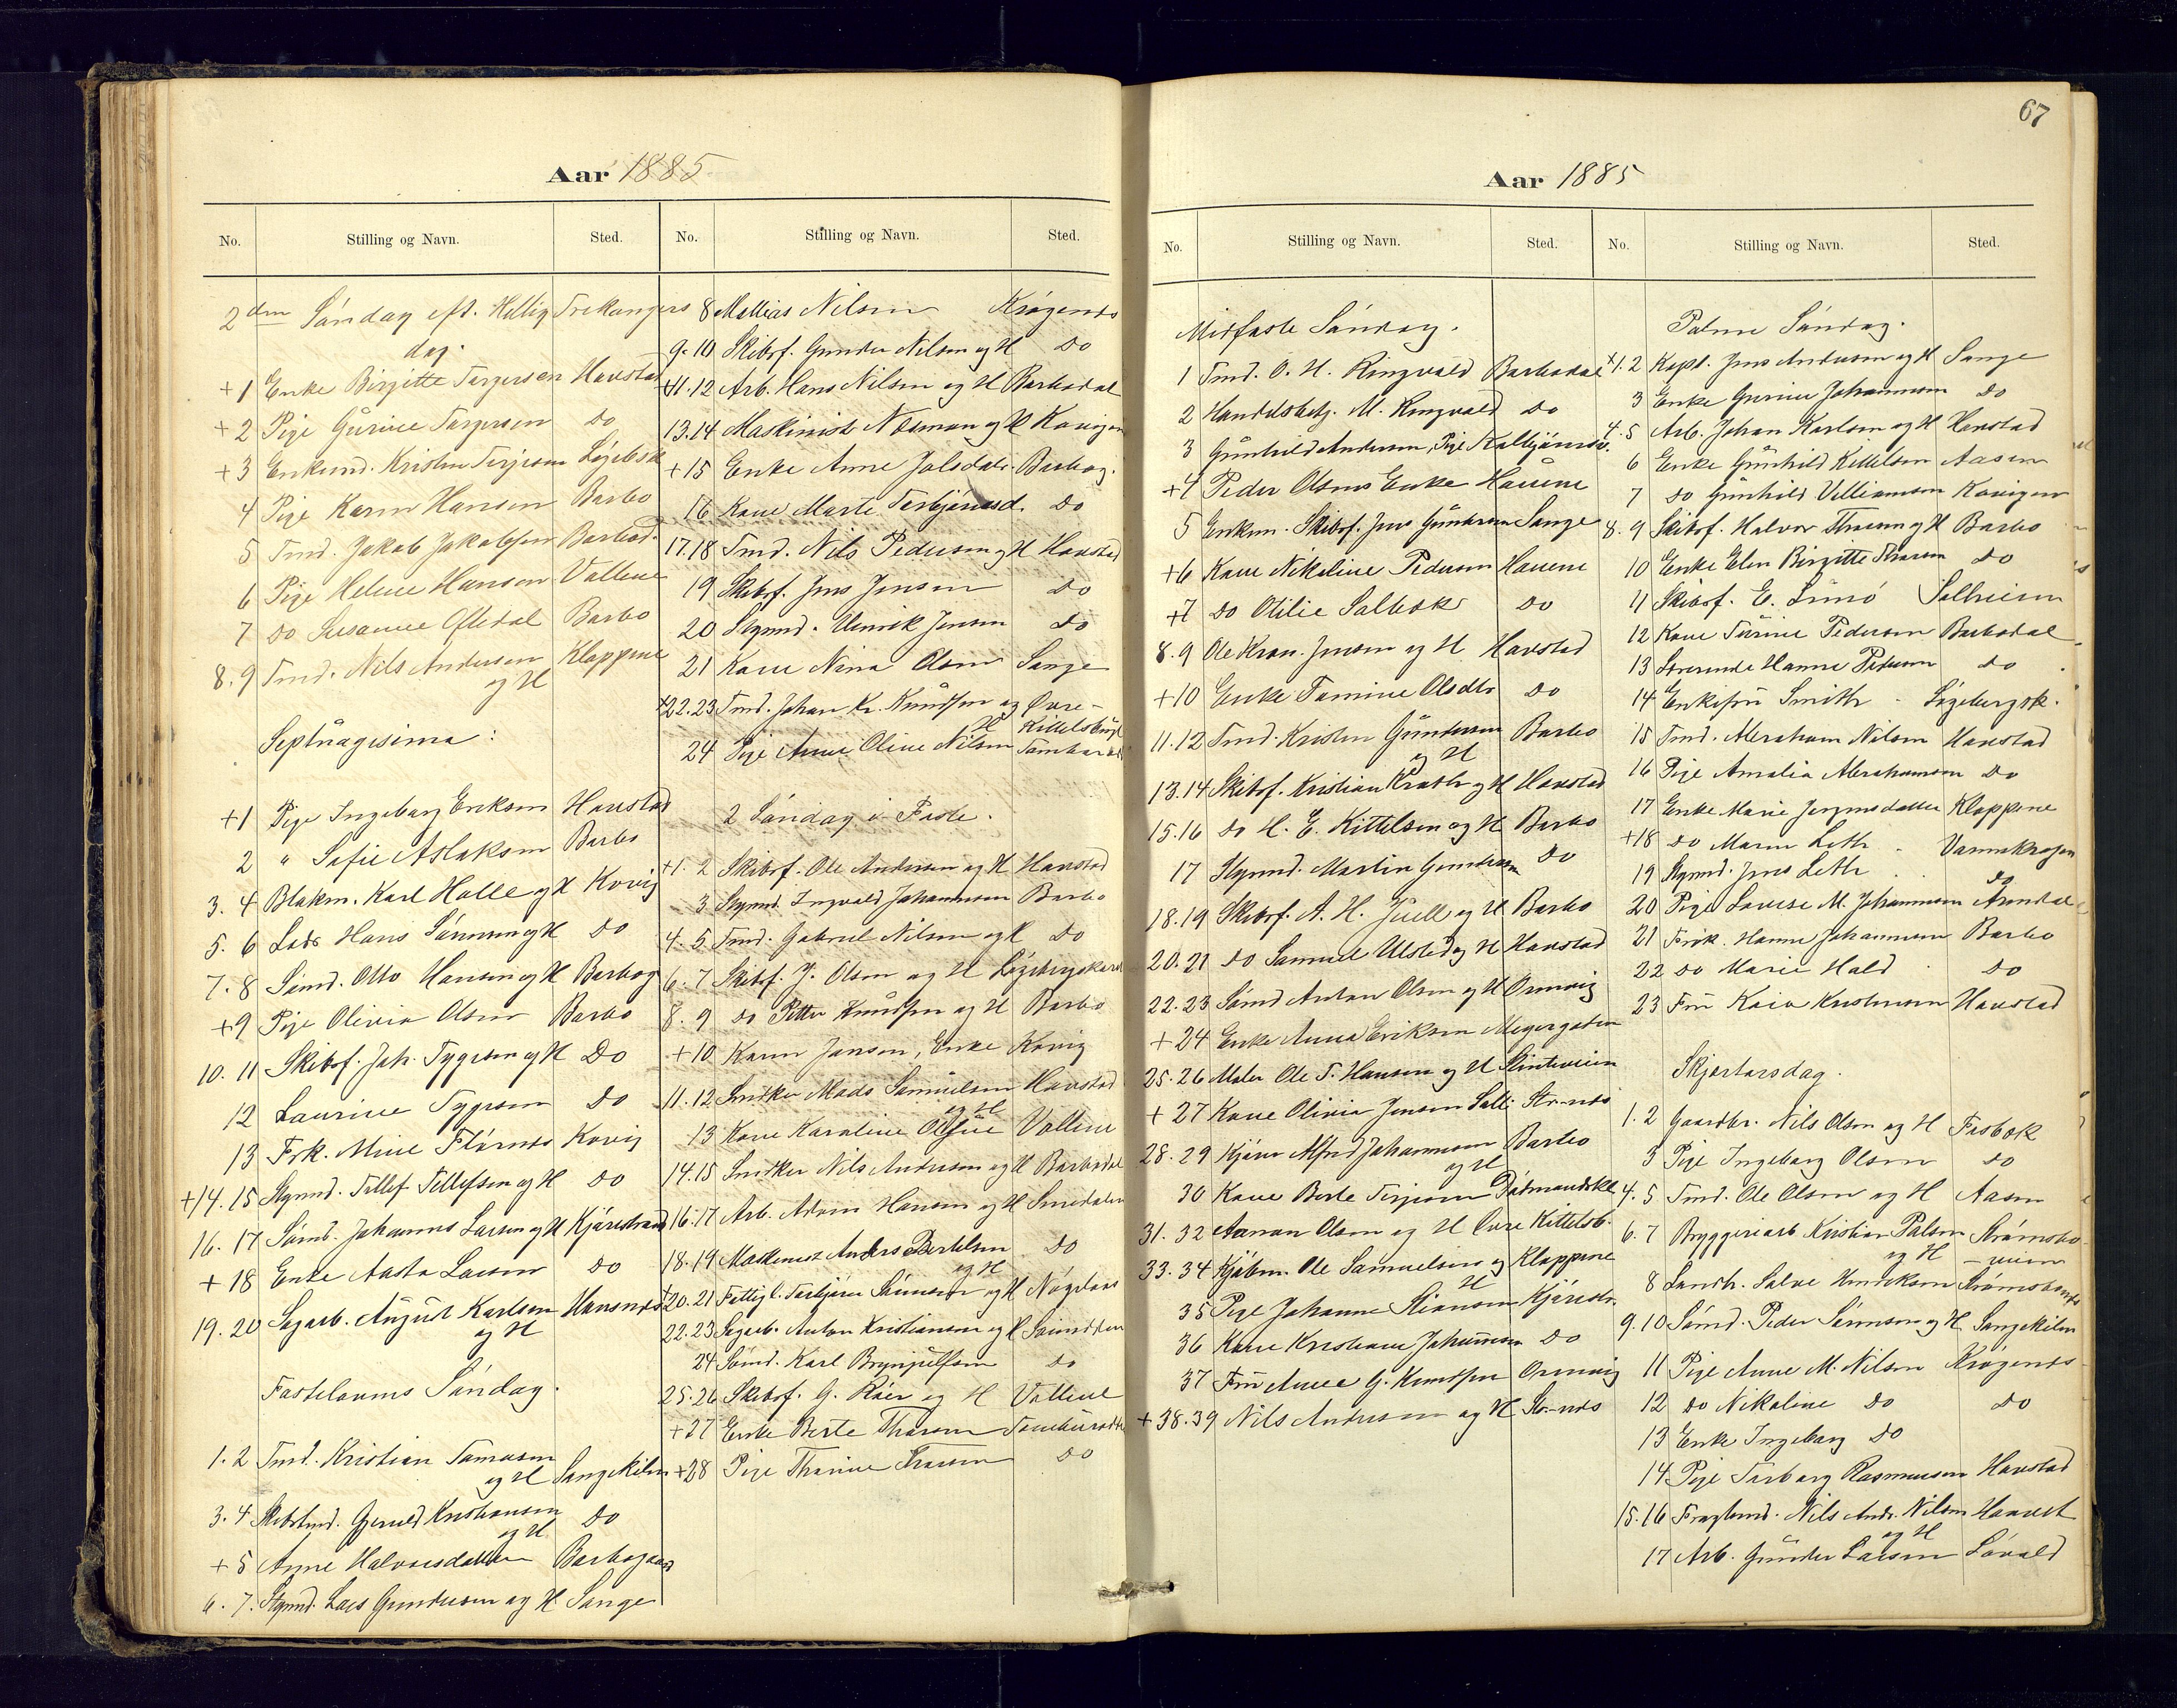 67
Aar 1885
No. Stilling og Navn. Sted. No. Stilling og Navn. Sted.
2den Søndag eft. Hellig Trekongers
dag.
+1 Enke Birgitte Torgersen Havstad
+2 Pige Gurine Torgersen Do
+3 Enkemd. Kristen Terjesen
4 Pige Karen Hansen Barbo
5 Tmd. Jakob Jakobsen Barbod.
6 Pige Helene Hansen Vollene
7 Do Susanne Ofledal Barbo
8. 9 Tmd. Nils Andersen Kloppene
og H
Septuagesima:
+1 Pige Ingeborg Eriksen Havstad
2 " Sofie Aslaksen Barbo
3. 4 Blakm. Karl Holle og H Kovig
5. 6 Lods Hans Sørensen og H Do
7. 8 Sømd. Otto Hansen og H Barbog
+9 Pige Olivia Olsen Barbo
10. 11 Skibsf. Joh. Tygesen og H Do
12 Laurine Tygesen Do
13 Frk. Mine Flørnes Kovig
+14. 15 Stymd. Tellef Tellefsen og H Do
16. 17 Sømd. Johannes Larsen og H Kjørrestrand
+18 Enke Aasta Larsen Do
19. 20 Sagarb. August Karlsen Havsnes
og H
Fastelavns Søndag.
1. 2 Tmd. Kristian Tomasen
og H Songekilen
3. 4 Skibstmd. Gjeruld Kristiansen
og H Do
+5 Anne Halvorsdatter Barbogaard
6. 7. Stymd. Lars Gundersen og H Songe
8 Mathias Nilsen Krøgenes
9. 10 Skibsf. Gunder Nilsen og H Do
+11. 12 Arb. Hans Nilsen og H Barbodal
13. 14 Maskinist Næsman og H Kovigen
+15 Enke Anne Jolsdal Barbog.
16 Kone Marte Terbjørnsd. Do
17. 18 Tmd. Nils Pedersen og H Havstad
19 Skibsf. Jens Jensen Do
20 Stymd. Henrik Jensen Do
21 Kone Nina Olsen Songe
+22. 23 Tmd. Johan Kr. Knudsen og Øvre-
H Kittelsbugt
24 Pige Anne Oline Nilsen
2 Søndag i Faste.
+1. 2 Skibsf. Ole Andersen og H Havstad
3 Stymd. Ingvald Johannesen Barbo
4. 5 Tmd. Gabriel Nilsen og H Do
6. 7 Skibsf. J. Olsen og H
8. 9 Do Petter Knudsen og H Barbo
+10 Karen Jensen, Enke Kovig
11. 12 Snedker Mads Samuelsen Havstad
og H
13 Kone Karoline Vollene
14. 15 Snedker Nils Andersen og H Barbodal
16. 17 Arb. Adam Hansen og H Smedalen
18. 19 Maskinist Anders Bertelsen Do
og H
+20. 21 Fattigl. Terbjørn Sørensen og H
22. 23 Sagarb. Anton Kristiansen og H
24 Sømd. Karl Brynjulfsen Do
25. 26 Skibsf. G. Røer og H Vollene
+27 Enke Berte Thorsen
+28 Pige Thorine Thorsen Do
Aar 1885
No. Stilling og Navn. Sted. No. Stilling og Navn. Sted.
Midfaste Søndag.
1 Tmd. O. H. Ringvold Barbodal
2 Handelsbetj. M. Ringvold Do
3 Gunhild Andersen, Pige
+4 Peder Olsens Enke Havene
5 Enkem. Skibsf. Jens Gundersen Songe
+6 Kone Nikoline Pedersen Havene
+7 Do Otilie Solbek Do
8. 9 Ole Kran. Jensen og H Havstad
+10 Enke Tomine Olsdtr Do
11. 12 Tmd. Kristen Gundersen Barbo
og H
13. 14 Skibsf. Kristian Krath og H Havstad
15. 16 Do H. E. Kittelsen og H Barbo
17 Stymd. Martin Gundersen Do
18. 19 Skibsf. A. H. Juell og H Barbo
20. 21 Do Samuel Ulsted og H Havstad
22. 23 Sømd Anton Olsen og H Ormvig
+24 Enke Anna Eriksen Meyergaten
25. 26 Maler Ole T. Hansen og H
+27 Kone Olivia Jensen
28. 29 Kjører Alfred Johannesen Barbo
og H
30 Kone Berte Terjesen Dødmandskl.
31. 32 Aanon Olsen og H Øvre Kittelsb.
33. 34 Kjøbm. Ole Samuelsen og Kloppene
H
35 Pige Johanne Stiansen Kjørrestr.
36 Kone Kristiane Johannesen Do
37 Fru Anne G. Knudsen Ormvig
+38. 39 Nils Andersen og H
Palme Søndag.
+1. 2 Kapt. Jens Andersen og H Songe
3 Enke Gurine Johannesen Do
4. 5 Arb. Johan Karlsen og H Havstad
6 Enke Gunhild Kittelsen Aasen
7 Do Gunhild Villiamsen Kovigen
8. 9 Skibsf. Halvor Thorsen og H Barbo
10 Enke Elen Birgitte Thorsen Do
11 Skibsf. E. Lunø Solheim
12 Kone Turine Pedersen Barbodal
13 Lærerinde Hanne Pedersen Do
14 Enkefru Smith
15 Tmd. Abraham Nilsen Havstad
16 Pige Amalia Abrahamsen Do
17 Enke Marie Jørgensdatter Kloppene
+18 Do Maren Leth
19 Stymd. Jens Leth Do
20 Pige Lovise M. Johannesen Arendal
21 Frøk. Hanne Johannesen Barbo
22 Do Marie Hald Do
23 Fru Kaia Kristensen Havstad
Skjærtorsdag.
1. 2 Gaardbr. Nils Olsen og H Fosbæk
3 Pige Ingeborg Olsen Do
4. 5 Tmd. Ole Olsen og H Aasen
6. 7 Bryggeriarb Kristian Palsen Strømsbo-
og H - veien
8 Landh. Salve Henriksen
9. 10 Sømd. Peder Sørensen og H Songekilen
11 Pige Anne M. Nilsen Krøgenes
12 Do Nikoline Do Do
13 Enke Ingeborg Do
14 Pige Torborg Rasmussen Havstad
15. 16 Fragtemd. Nils Andr. Nilsen
og H
17 Arb. Gunder Larsen Løvold